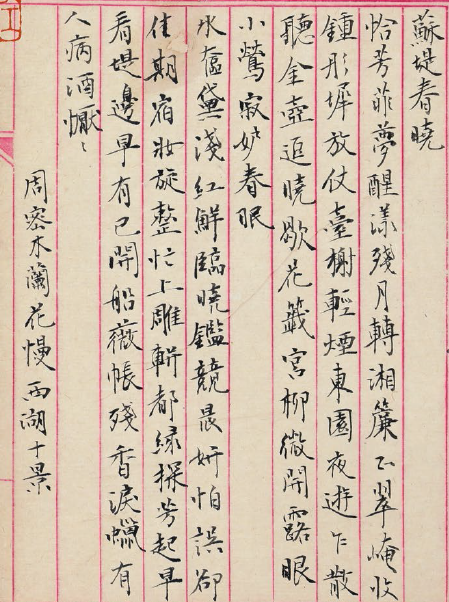 蘇堤春曉
恰芳菲夢醒漾殘月轉湘簾正翠崦收
鍾彤墀放仗臺榭輕煙東園夜遊乍散
聽金壺逗曉歇花籤宮柳微開露眼
小鶯寂妒春眠
冰奩黛淺紅鮮臨曉鑑競晨妍怕誤卻
佳期宿妝旋整忙上雕軿都緣探芳起早
看堤邊早有已開船薇帳殘香淚蠟有
人病酒懨〻
周密木蘭花慢西湖十景